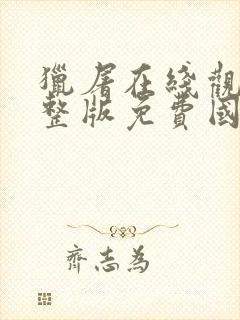 獵屠在綫觀
整版免費國
齊志為